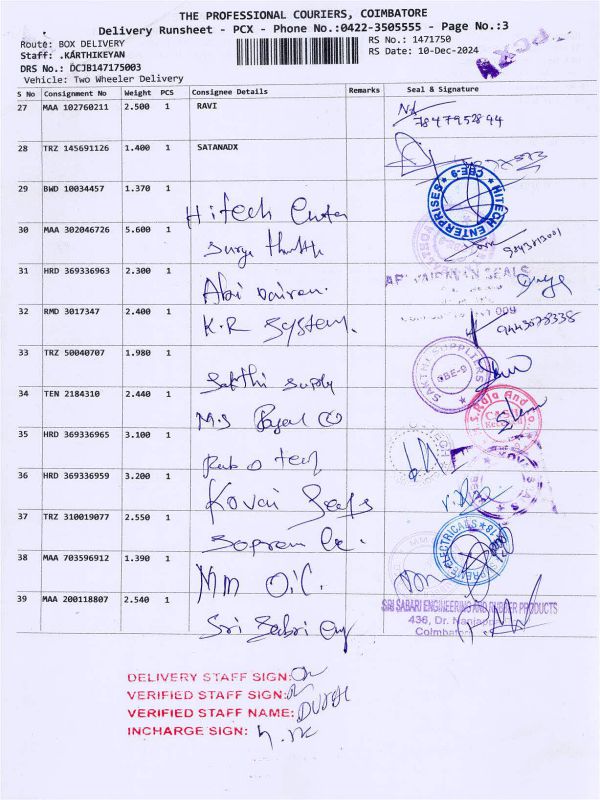 THE PROFESSIONAL COURIERS, COIMBATORE
Delivery Runsheet - PCX - Phone No.:0422-3505555 - Page No.:3
Route: BOX DELIVERY
RS No.: 1471750
Staff: .KARTHIKEYAN
RS Date: 10-Dec-2024
DRS No.: DCJB147175003
Vehicle: Two Wheeler Delivery
PCX
S No Consignment No Weight PCS Consignee Details Remarks Seal & Signature
27 MAA 102760211 2.500 1 RAVI
7847952894
28 TRZ 145691126 1.400 1 SATANADX
29 BWD 10034457 1.370 1 Hitech Enter
HITECH ENTERPRISES * CBE-9 *
30 MAA 302046726 5.600 1 Surya
31 HRD 369336963 2.300 1 Abi vairam
SEALS
32 RMD 3017347 2.400 1 K.R System.
9443078338
33 TRZ 50040707 1.980 1 Sakthi supply
SAKTHI SUPPLIERS * CBE-9 *
34 TEN 2184310 2.440 1 M.S
S. Raja And Co
35 HRD 369336965 3.100 1 Rub o tech
36 HRD 369336959 3.200 1 Kovai Seals
37 TRZ 310019077 2.550 1 Suprem
SUPREME ELECTRICALS
38 MAA 703596912 1.390 1 MM OIL
39 MAA 200118807 2.540 1 Sri Sabri Eng
SRI SABARI ENGINEERING AND RUBBER PRODUCTS
436, Dr. Nanjappa
Coimbatore
DELIVERY STAFF SIGN:
VERIFIED STAFF SIGN:
VERIFIED STAFF NAME:
INCHARGE SIGN: